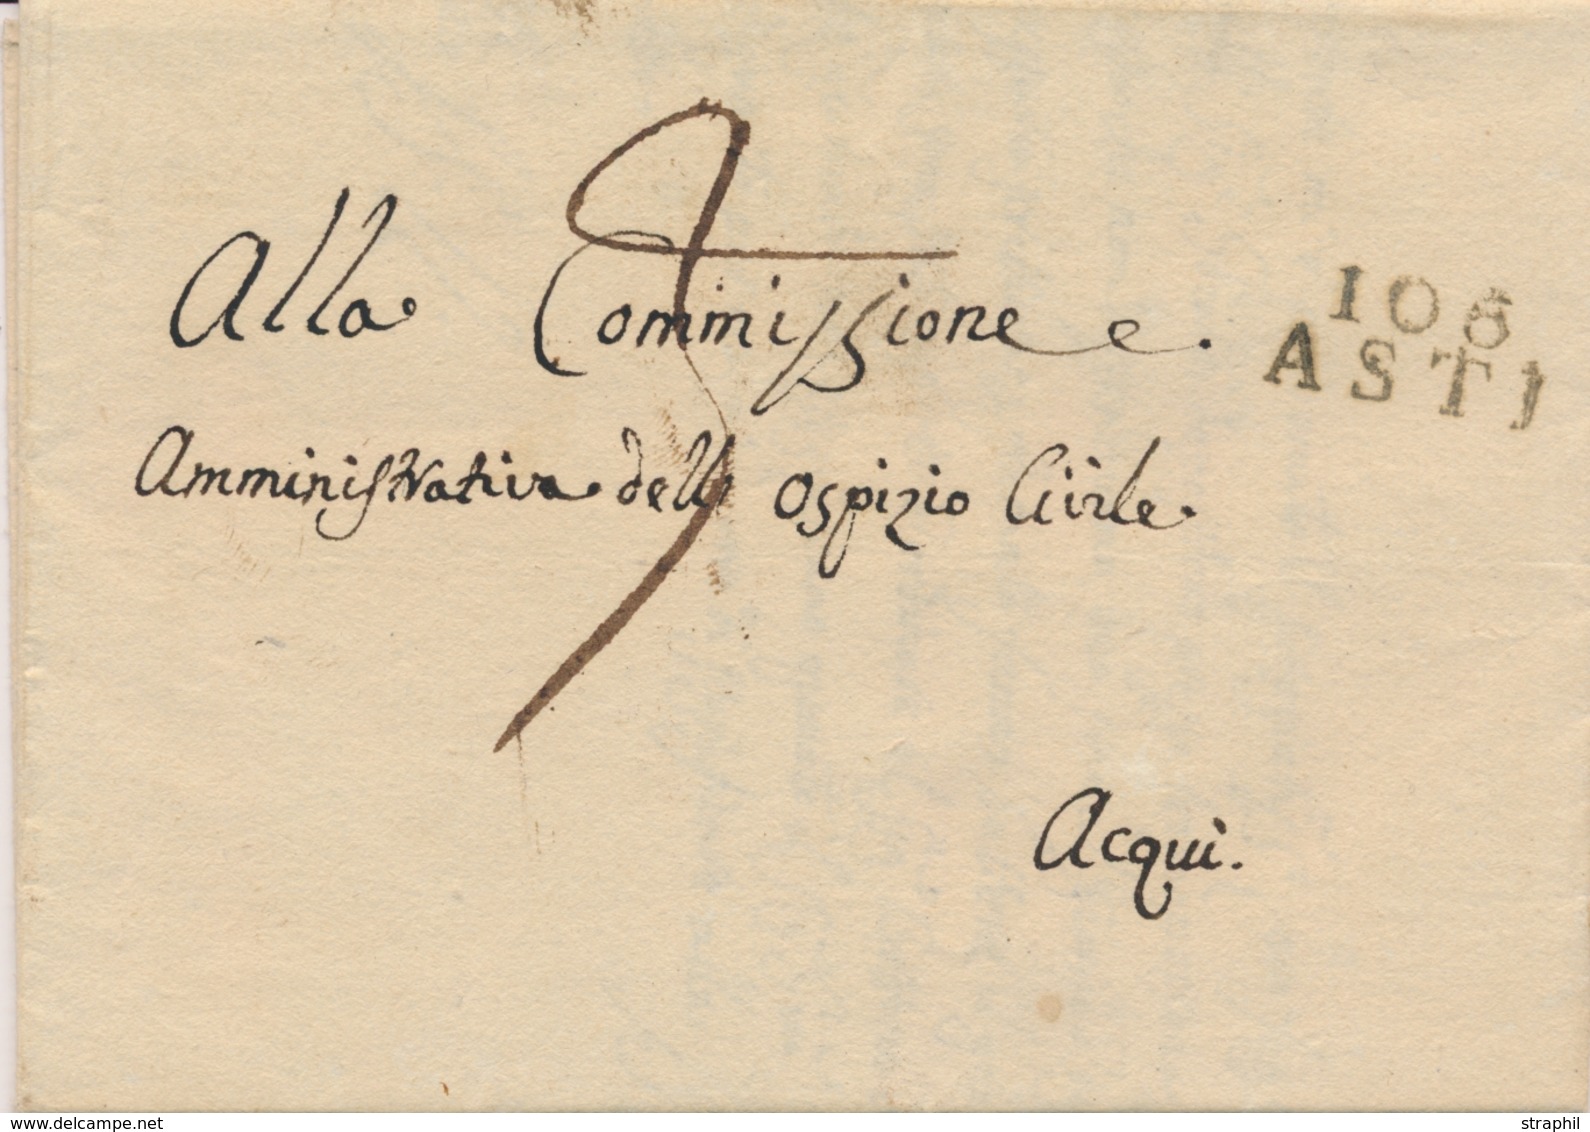 Alla Commissione e.
106
ASTI
Amministrativa dell Ospizio Civile.
Acqui.
delcampe.net
straphil